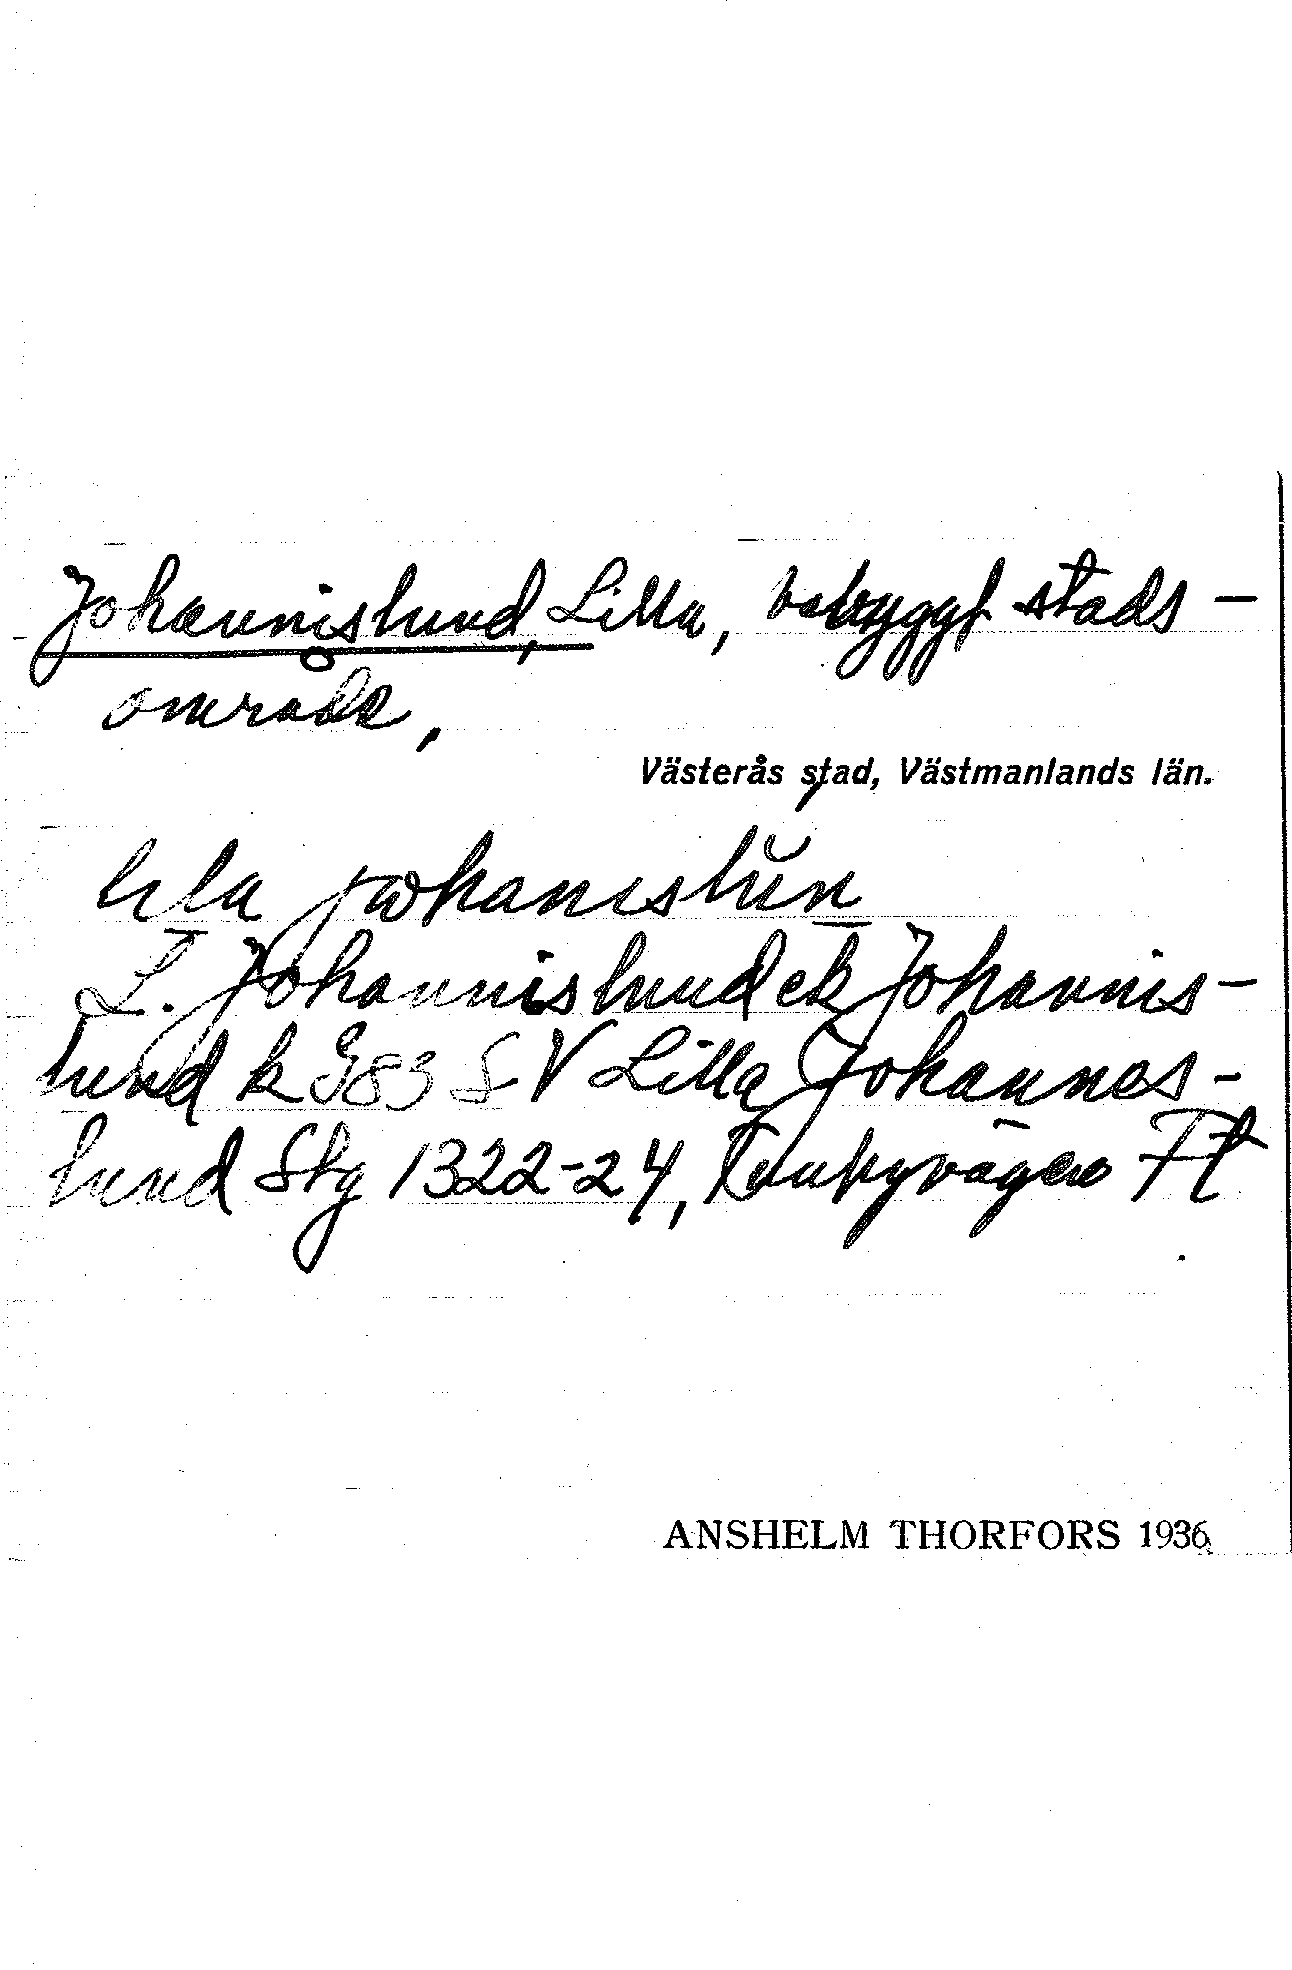 Johannislund, Lilla, bebyggt stads-
område,
Västerås stad, Västmanlands län.
lila johanislun
L. Johannislund ek Johannis-
lund k G83 S V Lilla Johannes-
lund Stg 1322-24, FT
ANSHELM THORFORS 1936